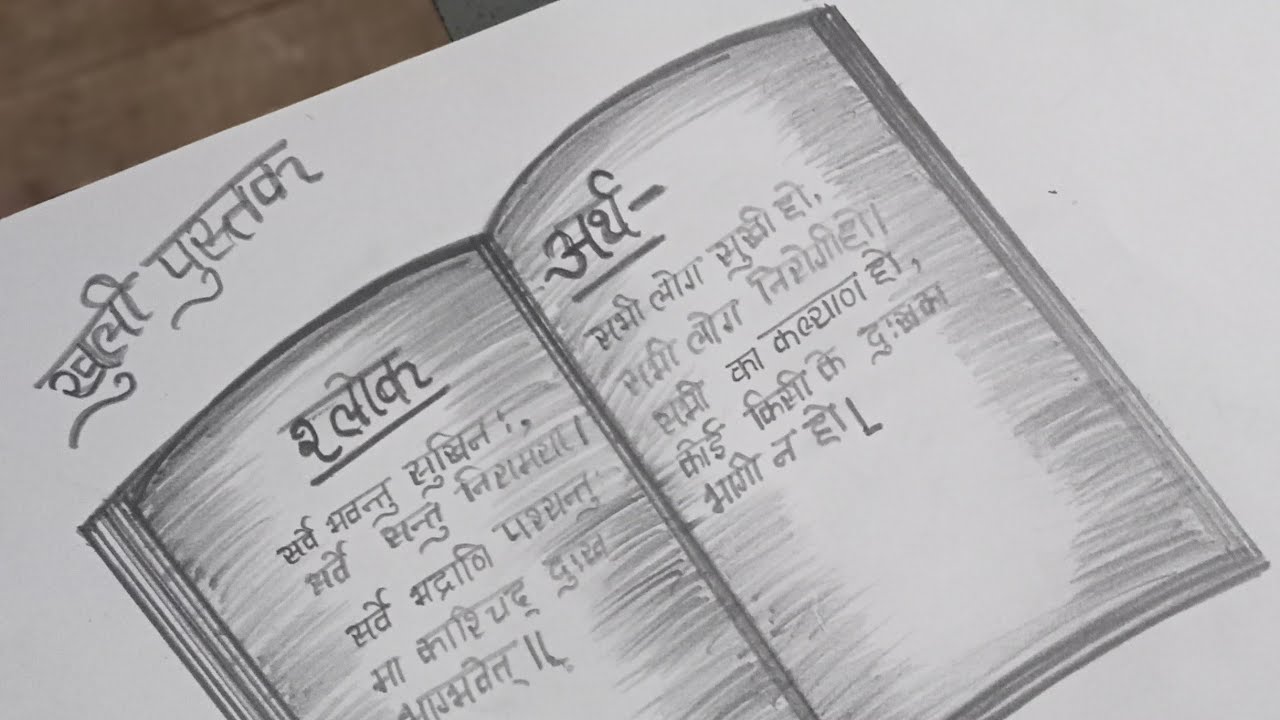 खुली पुस्तक
श्लोक
सर्वे भवन्तु सुखिनः,
सर्वे सन्तु निरामया।
सर्वे भद्राणि पश्यन्तु
मा काश्चिद् दुःख
भाग्भवेत्॥
अर्थ-
सभी लोग सुखी हो,
सभी लोग निरोगी हो।
सभी का कल्याण हो,
कोई किसी के दुःख का
भागी न हो।